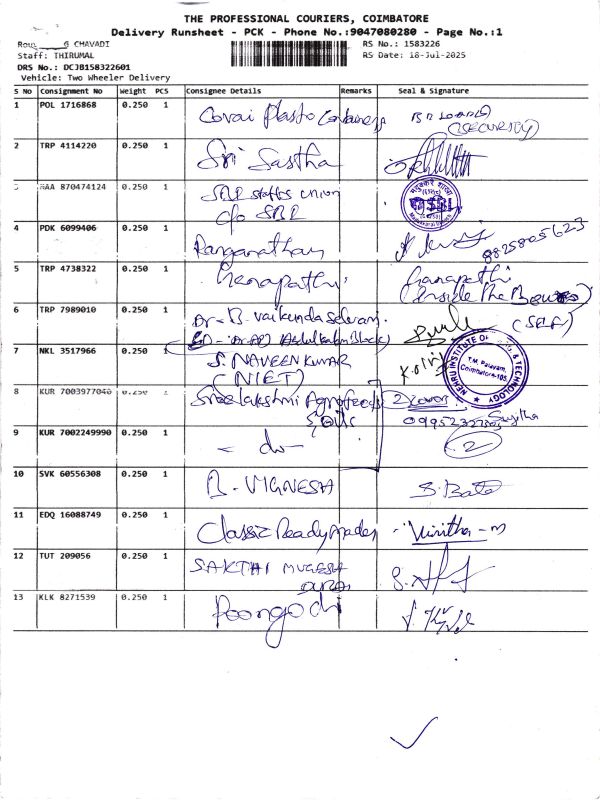 THE PROFESSIONAL COURIERS, COIMBATORE
Delivery Runsheet - PCK - Phone No.:9047080280 - Page No.:1
G CHAVADI
RS No.: 1583226
Staff: THIRUMAL
RS Date: 18-Jul-2025
DRS No.: DCJB158322601
Vehicle: Two Wheeler Delivery
S No Consignment No Weight PCS Consignee Details Remarks Seal & Signature
1 POL 1716868 0.250 1 Covai Plasto Containers
(SECURITY)
2 TRP 4114220 0.250 1 Sri Sastha
MAA 870474124 0.250 1 SRP staffs union
c/o SRP
SBI
4 PDK 6099406 0.250 1 Ranganathan 8825805623
5 TRP 4738322 0.250 1 Ganapathi Ganapathi
(Inside The
6 TRP 7989010 0.250 1 Dr. B. Vaikunda Selvam (SELF)
Abdulkalam Block)
7 NKL 3517966 0.250 1 S. NAVEEN KUMAR
(NIET)
NEHRU INSTITUTE OF & TECHNOLOGY
T.M. Palayam,
Coimbatore-105
8 KUR 7003977040 0.250 1 Sree lakshmi Agrofeeds 2 covers
& Oils Sujitha
9 KUR 7002249990 0.250 1 - do - 2
10 SVK 60556308 0.250 1 B. VIGNESH
11 EDQ 16088749 0.250 1 Classic Readymades Vinitha - m
12 TUT 209056 0.250 1 SAKTHI MUGESH
DURAI
13 KLK 8271539 0.250 1 Poongodi